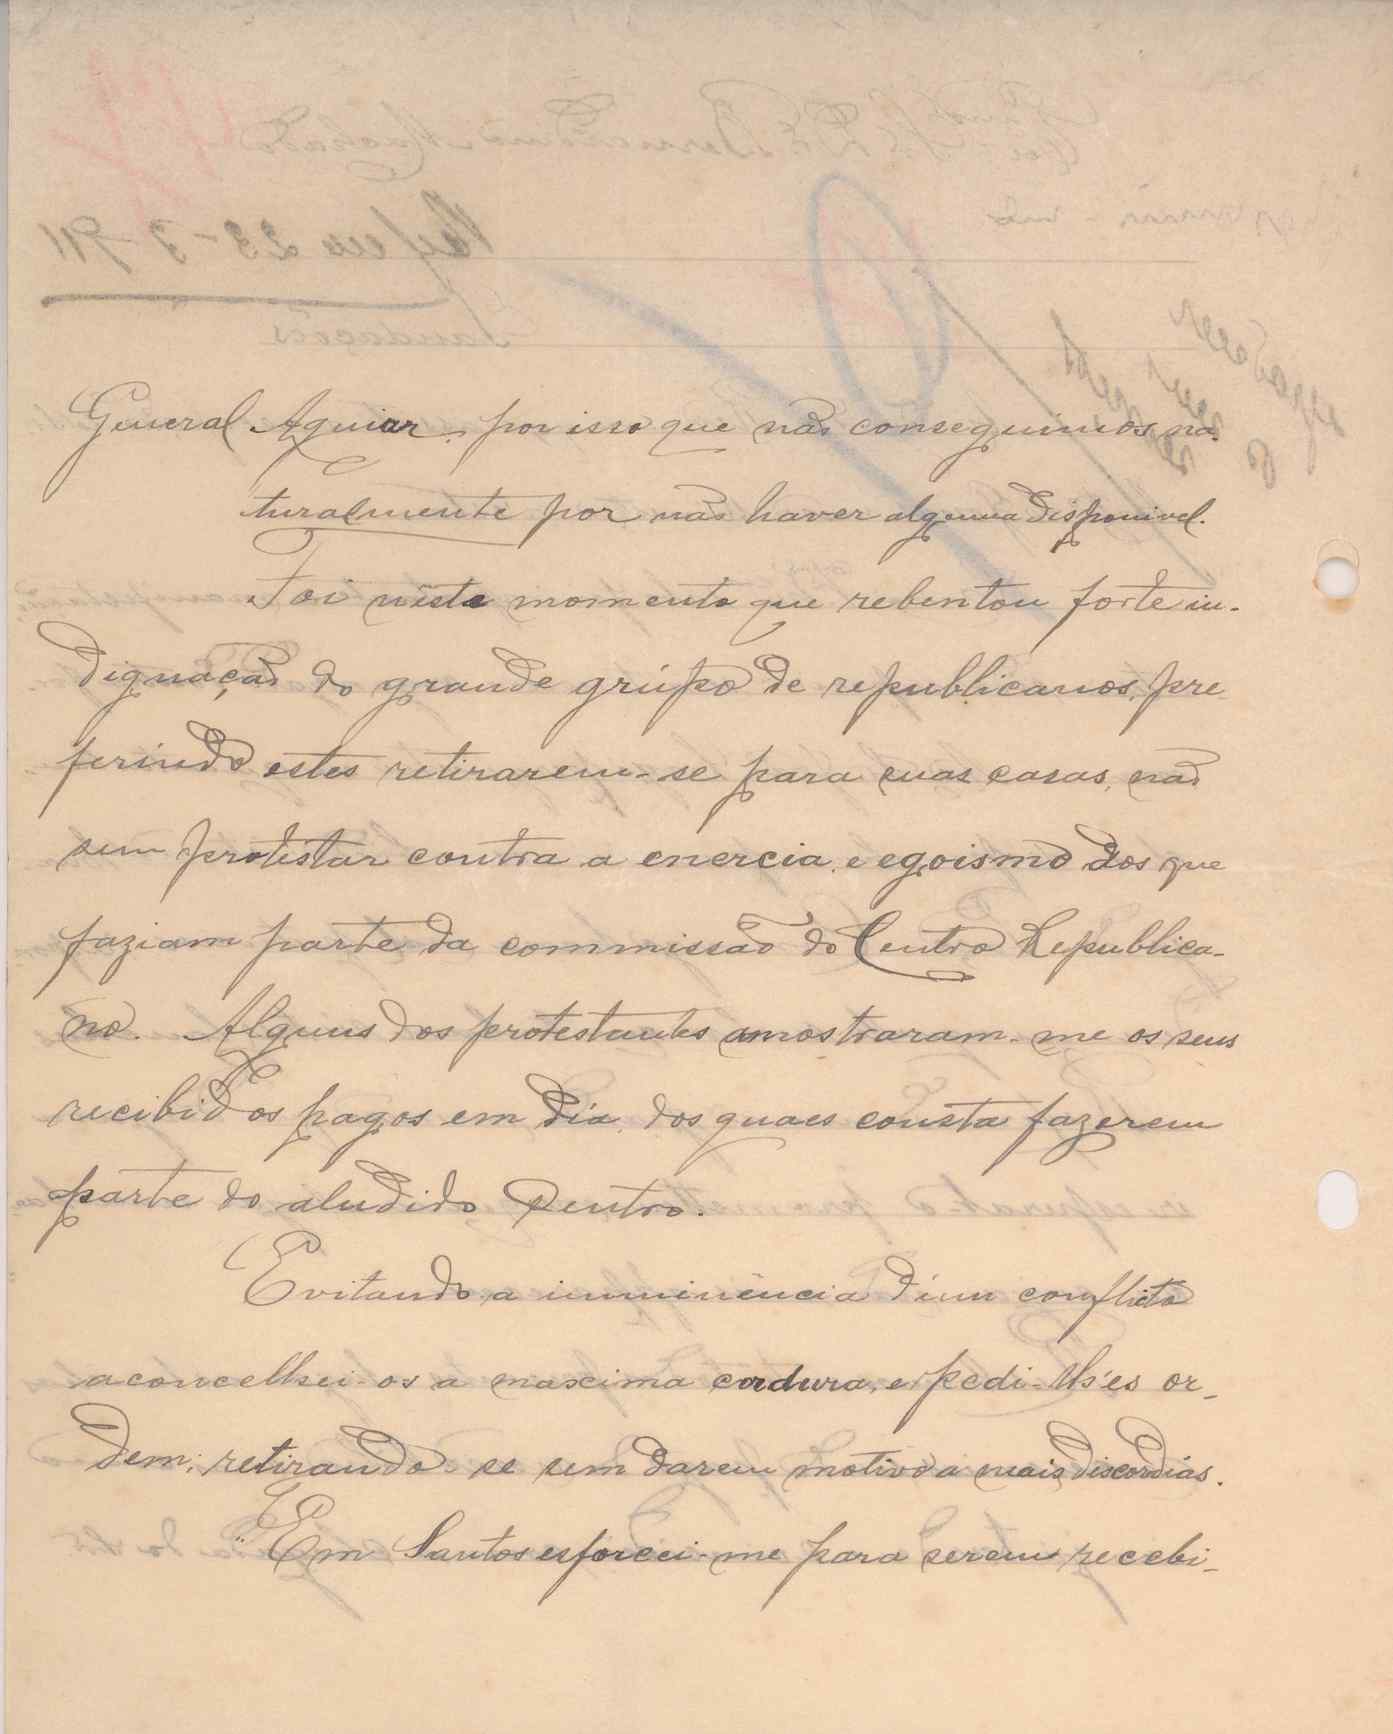 General Aguiar, por isso que não conseguimos, na-
turalmente por não haver alguma disponivel.
Foi nêste momento que rebentou forte in-
dignação do grande grúpo de republicanos, pre-
ferindo estes retirarem-se para suas casas, não
sem protestar contra a enercia, e egoismo dos que
faziam parte da commissão do Centro Republica-
no. Alguns dos protestantes amostraram-me os seus
recibidos pagos em dia, dos quaes consta fazerem
parte do aludido Centro.
Evitando a imminência d'um conflito
aconcelhei-os a maxima cordura, e pedi-lhes or-
dem, retirando-se sem darem motivo a mais discordias.
Em Santos esforcei-me para serem recebi-